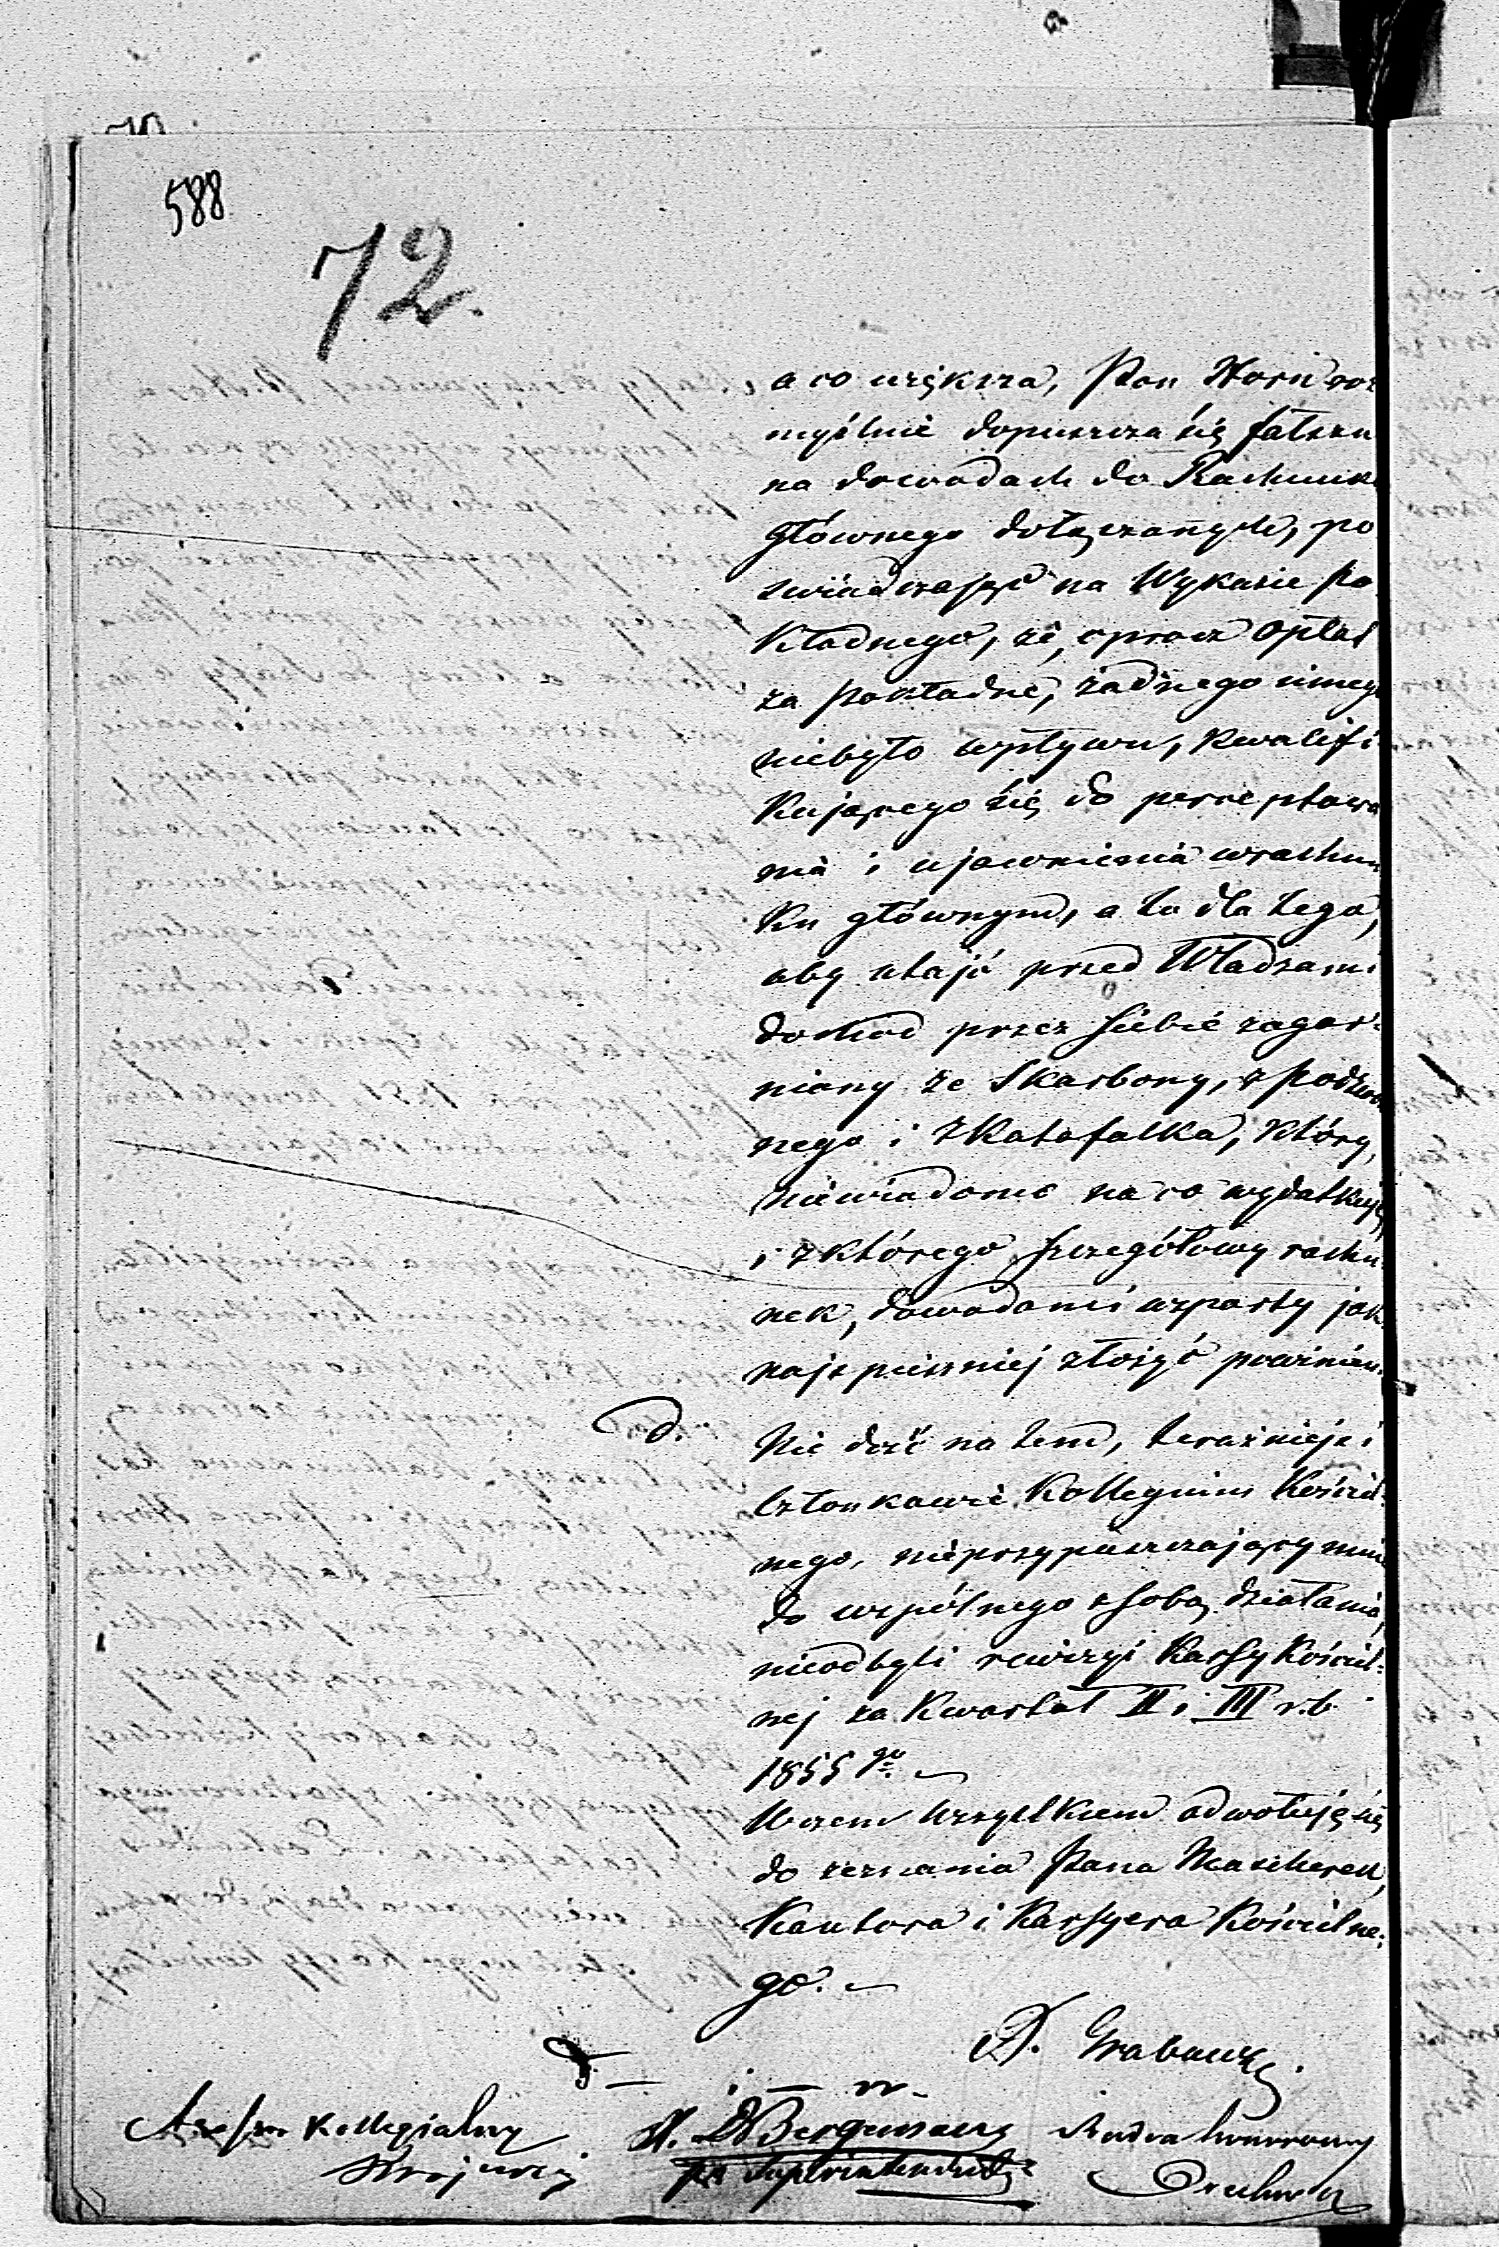 588
72.
a co większa, Pan Horn roz
myślnie dopuszcza się fałszu
na dowodach do Rachunk
głównego dołączanych, po
swiadczając na Wykazie Po
kładnego, że, oprocz Opłat
za Pokładne, żadnego innego
niebyło wpływu, kwalifi
kującego się do perceptowa
nia i ujawnienia w rachun
ku głównym, a to dla tego,
aby utajć przed Władzami
dochod przez siebie zagar-
niany ze Skarbony, z Podzwon
nego i z Katafalka, który,
niewiadomo na co wydatkuje,
i z którego szczegółowy rachu
nek, dowodami wsparty jak
najspieszniej złożyć powinien.
d. Nie dość na tem, terazniejsi
Członkowie Kollegium Kościel
nego, nieprzypuszczający mnie
do wspólnego z sobą działania,
nieodbyli rewizyi Kassy Kościel-
nej za Kwartał II i III r.b
1855 go. —
W czem wszystkiem odwołuję się
do zeznania Pana Mascherek,
Kantora i Kassyera Kościelne-
go. —
A. Grabowski.
d — i — w.
Assessor Kollegialny
A. Bergemann Radca honorowy
ps Superintendent